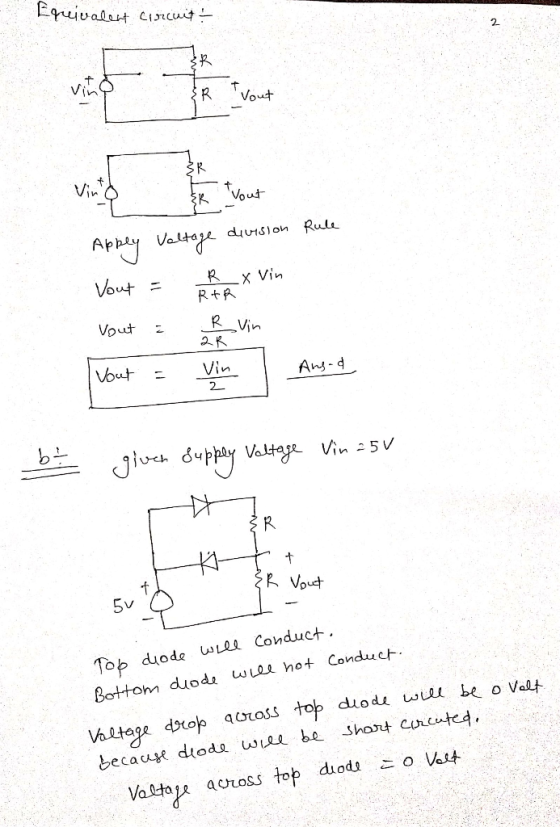 Equivalent circuit÷
2
R
Vin + −
R
+ Vout −
R
Vin + −
R
+ Vout −
Apply Voltage division Rule
Vout = R / R+R × Vin
Vout = R / 2R Vin
Vout = Vin / 2
Ans-d
b÷ given supply Voltage Vin = 5V
R
+
R Vout
+ 5V −
−
Top diode will conduct.
Bottom diode will not conduct.
Voltage drop across top diode will be 0 Volt
because diode will be short circuted.
Voltage across top diode = 0 Volt